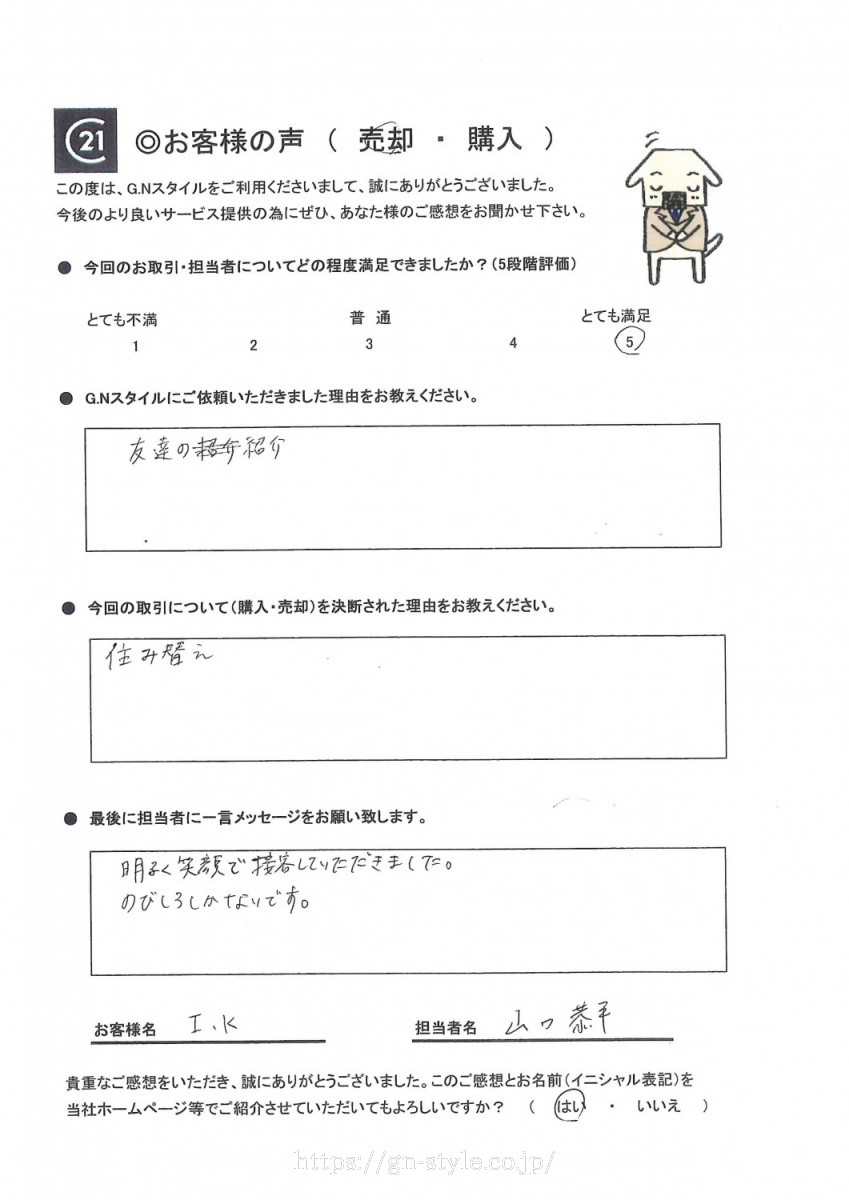 C21
◎お客様の声（ 売却 ・ 購入 ）
この度は、G.Nスタイルをご利用くださいまして、誠にありがとうございました。
今後のより良いサービス提供の為にぜひ、あなた様のご感想をお聞かせ下さい。
● 今回のお取引・担当者についてどの程度満足できましたか？（5段階評価）
とても不満 普 通 とても満足
1 2 3 4 5
● G.Nスタイルにご依頼いただきました理由をお教えください。
友達の紹介
● 今回の取引について（購入・売却）を決断された理由をお教えください。
住み替え
● 最後に担当者に一言メッセージをお願い致します。
明るく笑顔で接客していただきました。
のびしろしかないです。
お客様名 I.K 担当者名 山口 恭平
貴重なご感想をいただき、誠にありがとうございました。このご感想とお名前（イニシャル表記）を
当社ホームページ等でご紹介させていただいてもよろしいですか？ （ はい ・ いいえ ）
https://gn-style.co.jp/